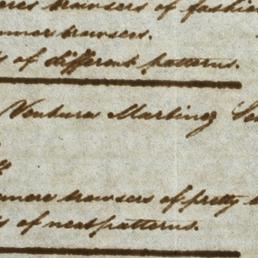 trowsers of fashion
summer trowsers.
s of different patterns.
Ventura Martinez Se
trowsers of pretty
s of neat patterns.